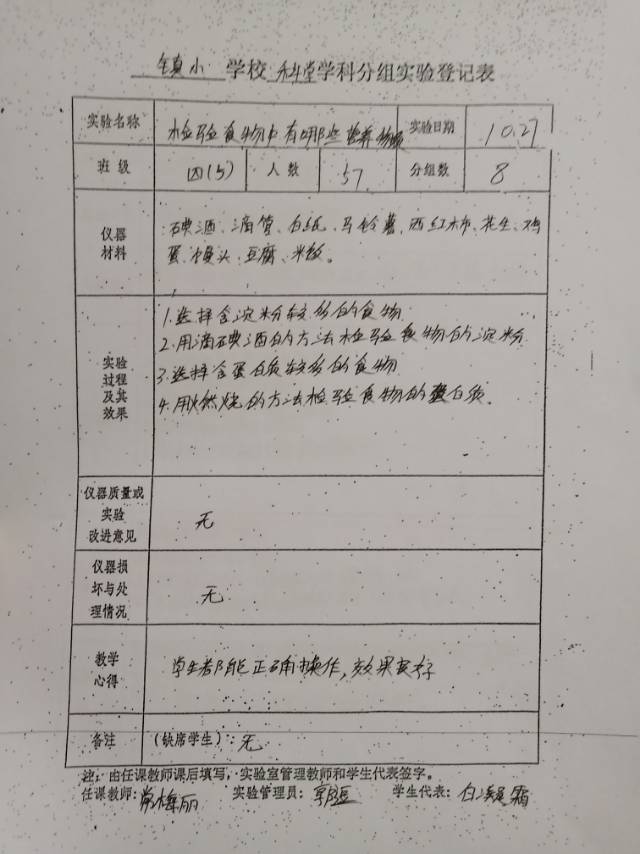 镇小 学校 科学 学科分组实验登记表
实验名称 检验食物中有哪些营养物质 实验日期 10.27
班级 四(5) 人数 57 分组数 8
仪器材料 碘酒、滴管、白纸、马铃薯、西红柿、花生、鸡
蛋、馒头、豆腐、米饭。
实验过程及其效果 1.选择含淀粉较多的食物
2.用滴碘酒的方法检验食物的淀粉
3.选择含蛋白质较多的食物
4.用燃烧的方法检验食物的蛋白质。
仪器质量或实验改进意见 无
仪器损坏与处理情况 无
教学心得 学生都能正确操作，效果较好
备注 (缺席学生)：无
注：由任课教师课后填写，实验室管理教师和学生代表签字。
任课教师：常梅丽 实验管理员： 学生代表：白凝霜